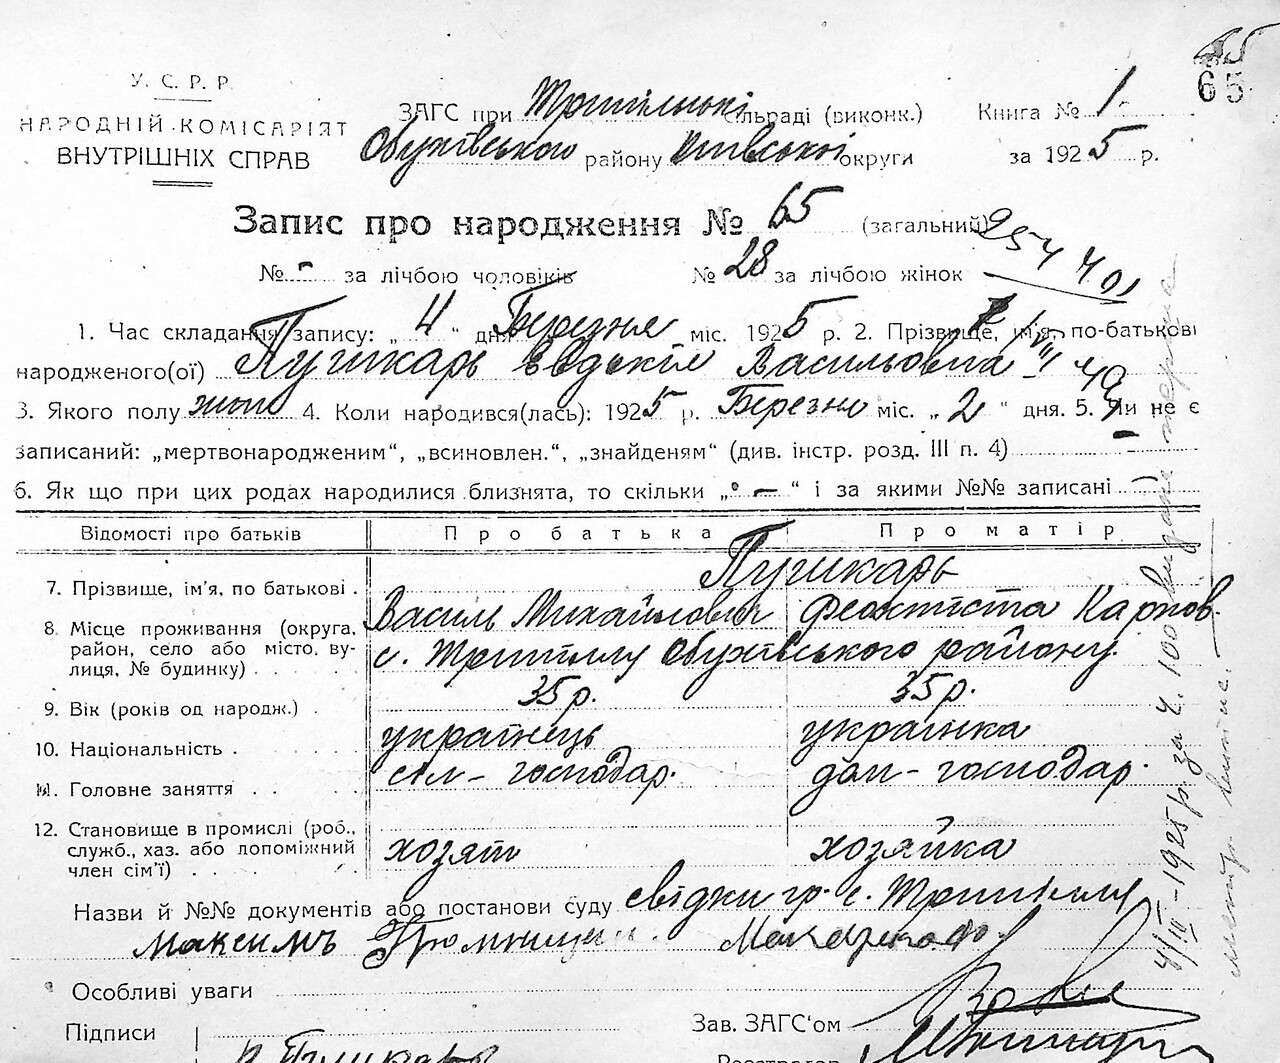 65
65
У. С. Р. Р.
НАРОДНІЙ КОМІСАРІЯТ
ВНУТРІШНІХ СПРАВ
ЗАГС при Трипільські сільраді (виконк.)
Обухівського району Київської округи
Книга № 1
за 1925 р.
Запис про народження № 65 (загальний)
№ - за лічбою чоловіків № 28 за лічбою жінок
1. Час складання запису: „4“ дня Березня міс. 1925 р. 2. Прізвище, ім'я, по-батькові
народженого(ої) Пушкарь Евдокія Васильовна
3. Якого полу жін 4. Коли народився(лась): 1925 р. Березня міс. „2“ дня. 5. Чи не є
записаний: „мертвонародженим“, „всиновлен.“, „знайденям“ (див. інстр. розд. III п. 4) -
6. Як що при цих родах народилися близнята, то скільки „-“ і за якими №№ записані -
Відомості про батьків Про батька Про матір
Пушкарь
7. Прізвище, ім'я, по батькові . Василь Михайлович Феоктиста Карпов.
8. Місце проживання (округа, район, село або місто, вулиця, № будинку) . . с. Трипіллу Обухівського району
9. Вік (років од народж.) . 35 р. 35 р.
10. Національність . українець українка
11. Головне заняття . . сіл-господар. дом-господар.
12. Становище в промислі (роб., служб., хаз. або допоміжний член сім'ї) . . хозяїн хозяйка
Назви й №№ документів або постанови суду свідки гр. с. Трипілля
Максимъ
Особливі уваги
Підписи
Зав. ЗАГС'ом
Пушкарь
4/III-1925 р. за ч. 100 видане